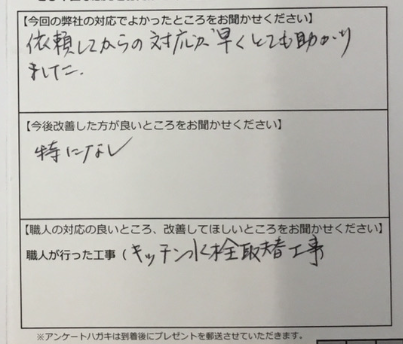 【今回の弊社の対応でよかったところをお聞かせください】
依頼してからの対応が早くとても助かり
ました.
【今後改善した方が良いところをお聞かせください】
特になし
【職人の対応の良いところ、改善してほしいところをお聞かせください】
職人が行った工事（キッチン水栓取替工事
※アンケートハガキは到着後にプレゼントを郵送させていただきます。